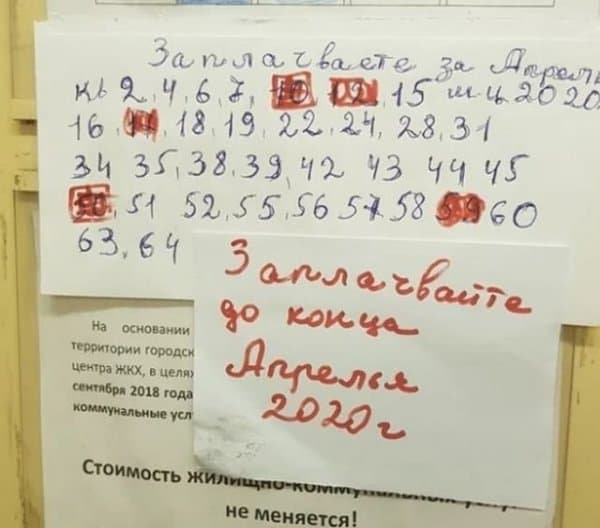 Заплачваете за Апрель
кв 2, 4, 6, 7, 10, 12, 15 м-ц 2020
16, 18, 19, 22, 24, 28, 31
34 35, 38, 39, 42 43 44 45
50, 51 52, 55, 56 57 58 59 60
63, 64
Заплачвайте
до конца
Апрелья
2020 г
На основании
территории городск
центра ЖКХ, в целях
сентября 2018 года
коммунальные усл
Стоимость жилищно-коммунальных
не меняется!